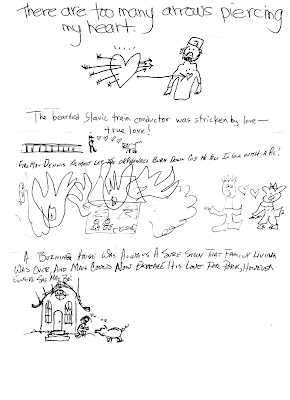 There are too many arrows piercing
my heart.
The bearded Slavic train conductor was stricken by love—
true love!
Fireman Dennis Almost Let The Orphanage Burn Down Cus He Fell In Love With A Pig!
A Burning House Was Always A Sure Sign That Family Living
Was Over, And Man Could Now Embrace His Love For Pork, However